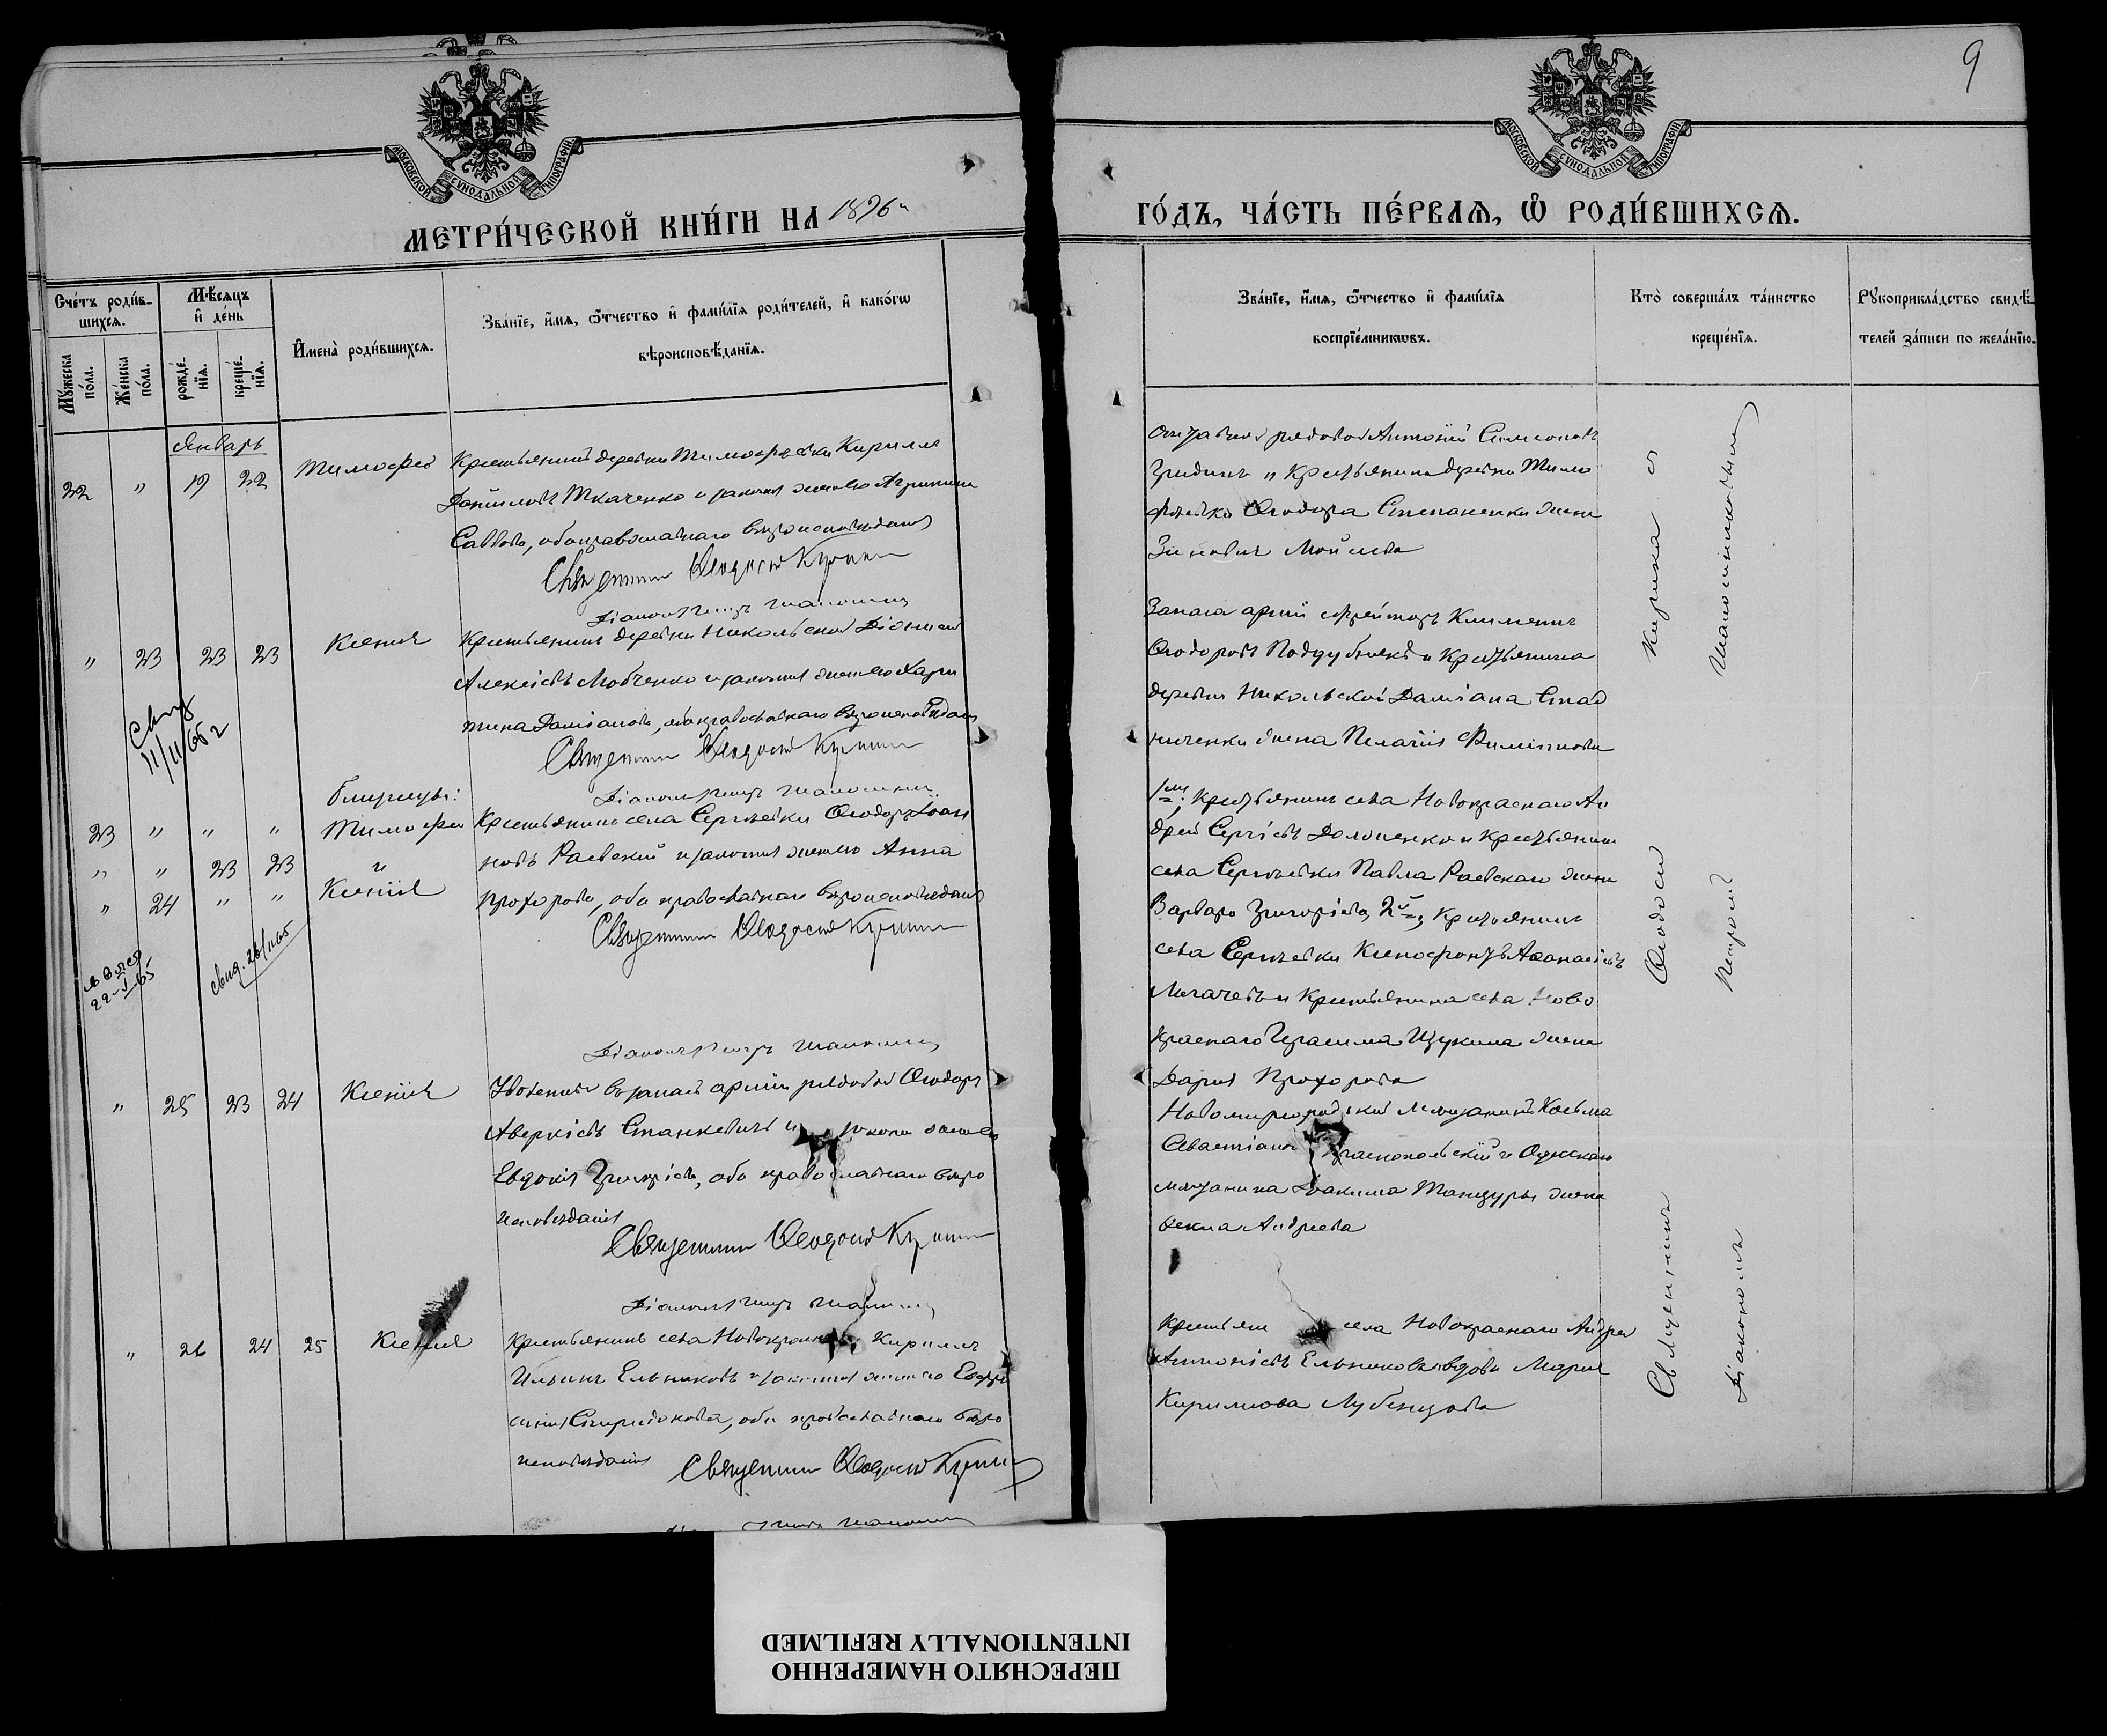 9
МОСКОВСКОЙ СѴНОДАЛЬНОЙ ТИПОГРАФІИ
МОСКОВСКОЙ СѴНОДАЛЬНОЙ ТИПОГРАФІИ
МЕТРИ́ЧЕСКОЙ КНИ́ГИ НА 1896
ГО́ДЪ, ЧА́СТЬ ПЕ́РВАѦ, Ѡ҆ РОДИ́ВШИХСѦ.
Сче́тъ роди́в-
шихсѧ.
Мꙋ́жеска
по́ла.
Же́нска
по́ла.
Мѣ́сѧцъ
и҆ де́нь
рожде́-
нїѧ.
креще́-
нїѧ.
И҆мена̀ роди́вшихсѧ.
Зва́нїе, и҆́мѧ, ѻ҆́тчество и҆ фами́лїѧ роди́телей, и҆ како́гѡ
вѣроисповѣ́данїѧ.
Январь
22 " 19 22 Тимофей
Крестьянинъ деревни Тимофеевки Кириллъ
Даниловъ Ткаченко и законная жена его Агрипина
Саввова, оба православнаго вѣроисповѣданія
Священникъ Ѳеодосій
Діаконъ Петръ
" 23 23 23 Ксенія
Крестьянинъ деревни Никольской Діонисій
Алексіевъ и законная жена его Хари
тина Даміанова, оба православнаго вѣроисповѣданія
Священникъ Ѳеодосій
11/II 65 г
Діаконъ Петръ
близнецы:
23 " " " Тимофей
" " 23 23 и
" 24 " " Ксенія
Крестьянинъ села Сергѣевки Ѳеодоръ Іоан
новъ Раевский и законная жена его Анна
Прохорова, оба православнаго вѣроисповѣданія
Священникъ Ѳеодосій
22-I-65
свид. 26/II 65
Діаконъ Петръ
" 25 23 24 Ксенія
Уволенный въ запасъ арміи рядовой Ѳеодоръ
Аверкіевъ Станкевичъ и законная жена его
Евдокія Григоріева, оба православнаго вѣро
исповѣданія
Священникъ Ѳеодосій
Діаконъ Петръ
" 26 24 25 Ксенія
Крестьянинъ села Новокраснаго Кириллъ
Ильинъ Ельниковъ и законная жена его Евфро
синія Спиридонова, оба православнаго вѣро
исповѣданія
Священникъ Ѳеодосій
Зва́нїе, и҆́мѧ, ѻ҆́тчество и҆ фами́лїѧ
воспрїе́мникѡвъ.
Кто̀ соверша́лъ та́инство
креще́нїѧ.
Рꙋкоприкла́дство свидѣ́-
телей за́писи по жела́нїю.
рядовой Антоній Симеоновъ
Гридинъ и крестьянина деревни Тимо
феевки Ѳеодора Степаненка жена
Зиновія Моисеева
Запаса арміи ефрейторъ Климентъ
Ѳеодоровъ Поддубный и крестьянина
деревни Никольской Даміана Стад
ниченка жена Пелагія Филиппова
1го; Крестьянинъ села Новокраснаго Ан
дрей Сергіевъ и крестьянина
села Сергѣевки Павла Раевскаго жена
Варвара Григоріева, 2й; крестьянинъ
села Сергѣевки Ксенофонтъ Аѳанасіевъ
и крестьянина села Ново
краснаго Герасима Щукина жена
Дарія Прохорова
Новомиргородскій мѣщанинъ Косьма
Севастіановъ Краснопольскій и Одесскаго
мѣщанина Іоакима Танцуры жена
Ѳекла Андреева
Крестьянинъ села Новокраснаго Андрей
Антоніевъ Ельниковъ и вдова Марія
Кириллова Лубенцова
Священникъ Ѳеодосій
Діаконъ Петръ
ПЕРЕСНЯТО НАМЕРЕННО
INTENTIONALLY REFILMED